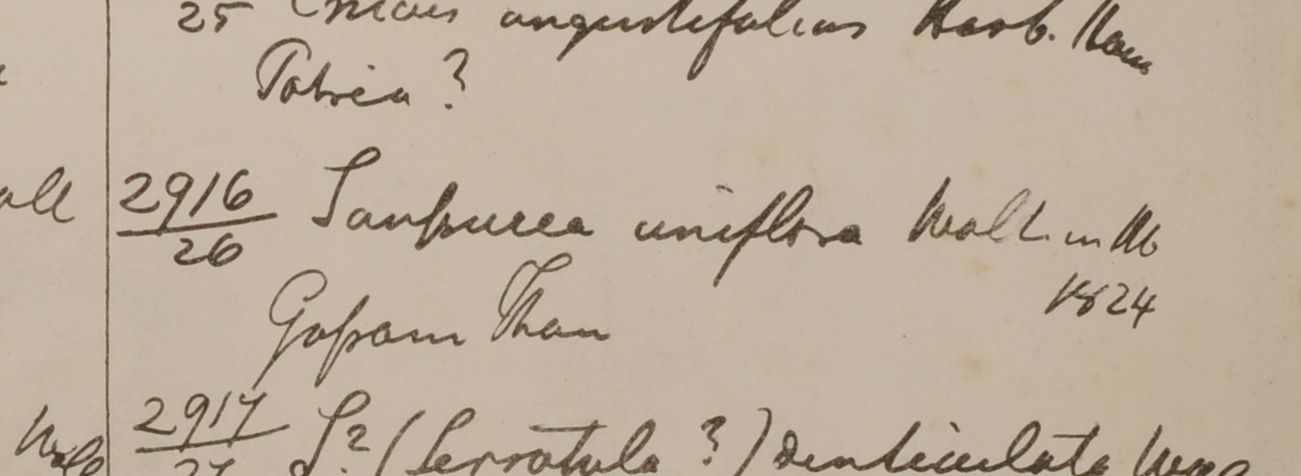 25 Cnicus angustifolius Herb. Ham
Patria ?
all 2916 Saussurea uniflora Wall. in Hb
26
1824
Gossain Than
Wall 2917 S? (Serratula ?) denticulata Wall
27